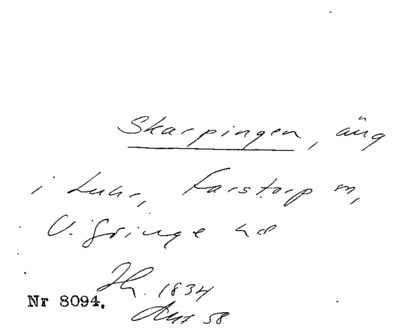 Skarpingen, äng
i Luhr, Farstorp sn,
V. Göinge hd
1834
Nr 8094. 58